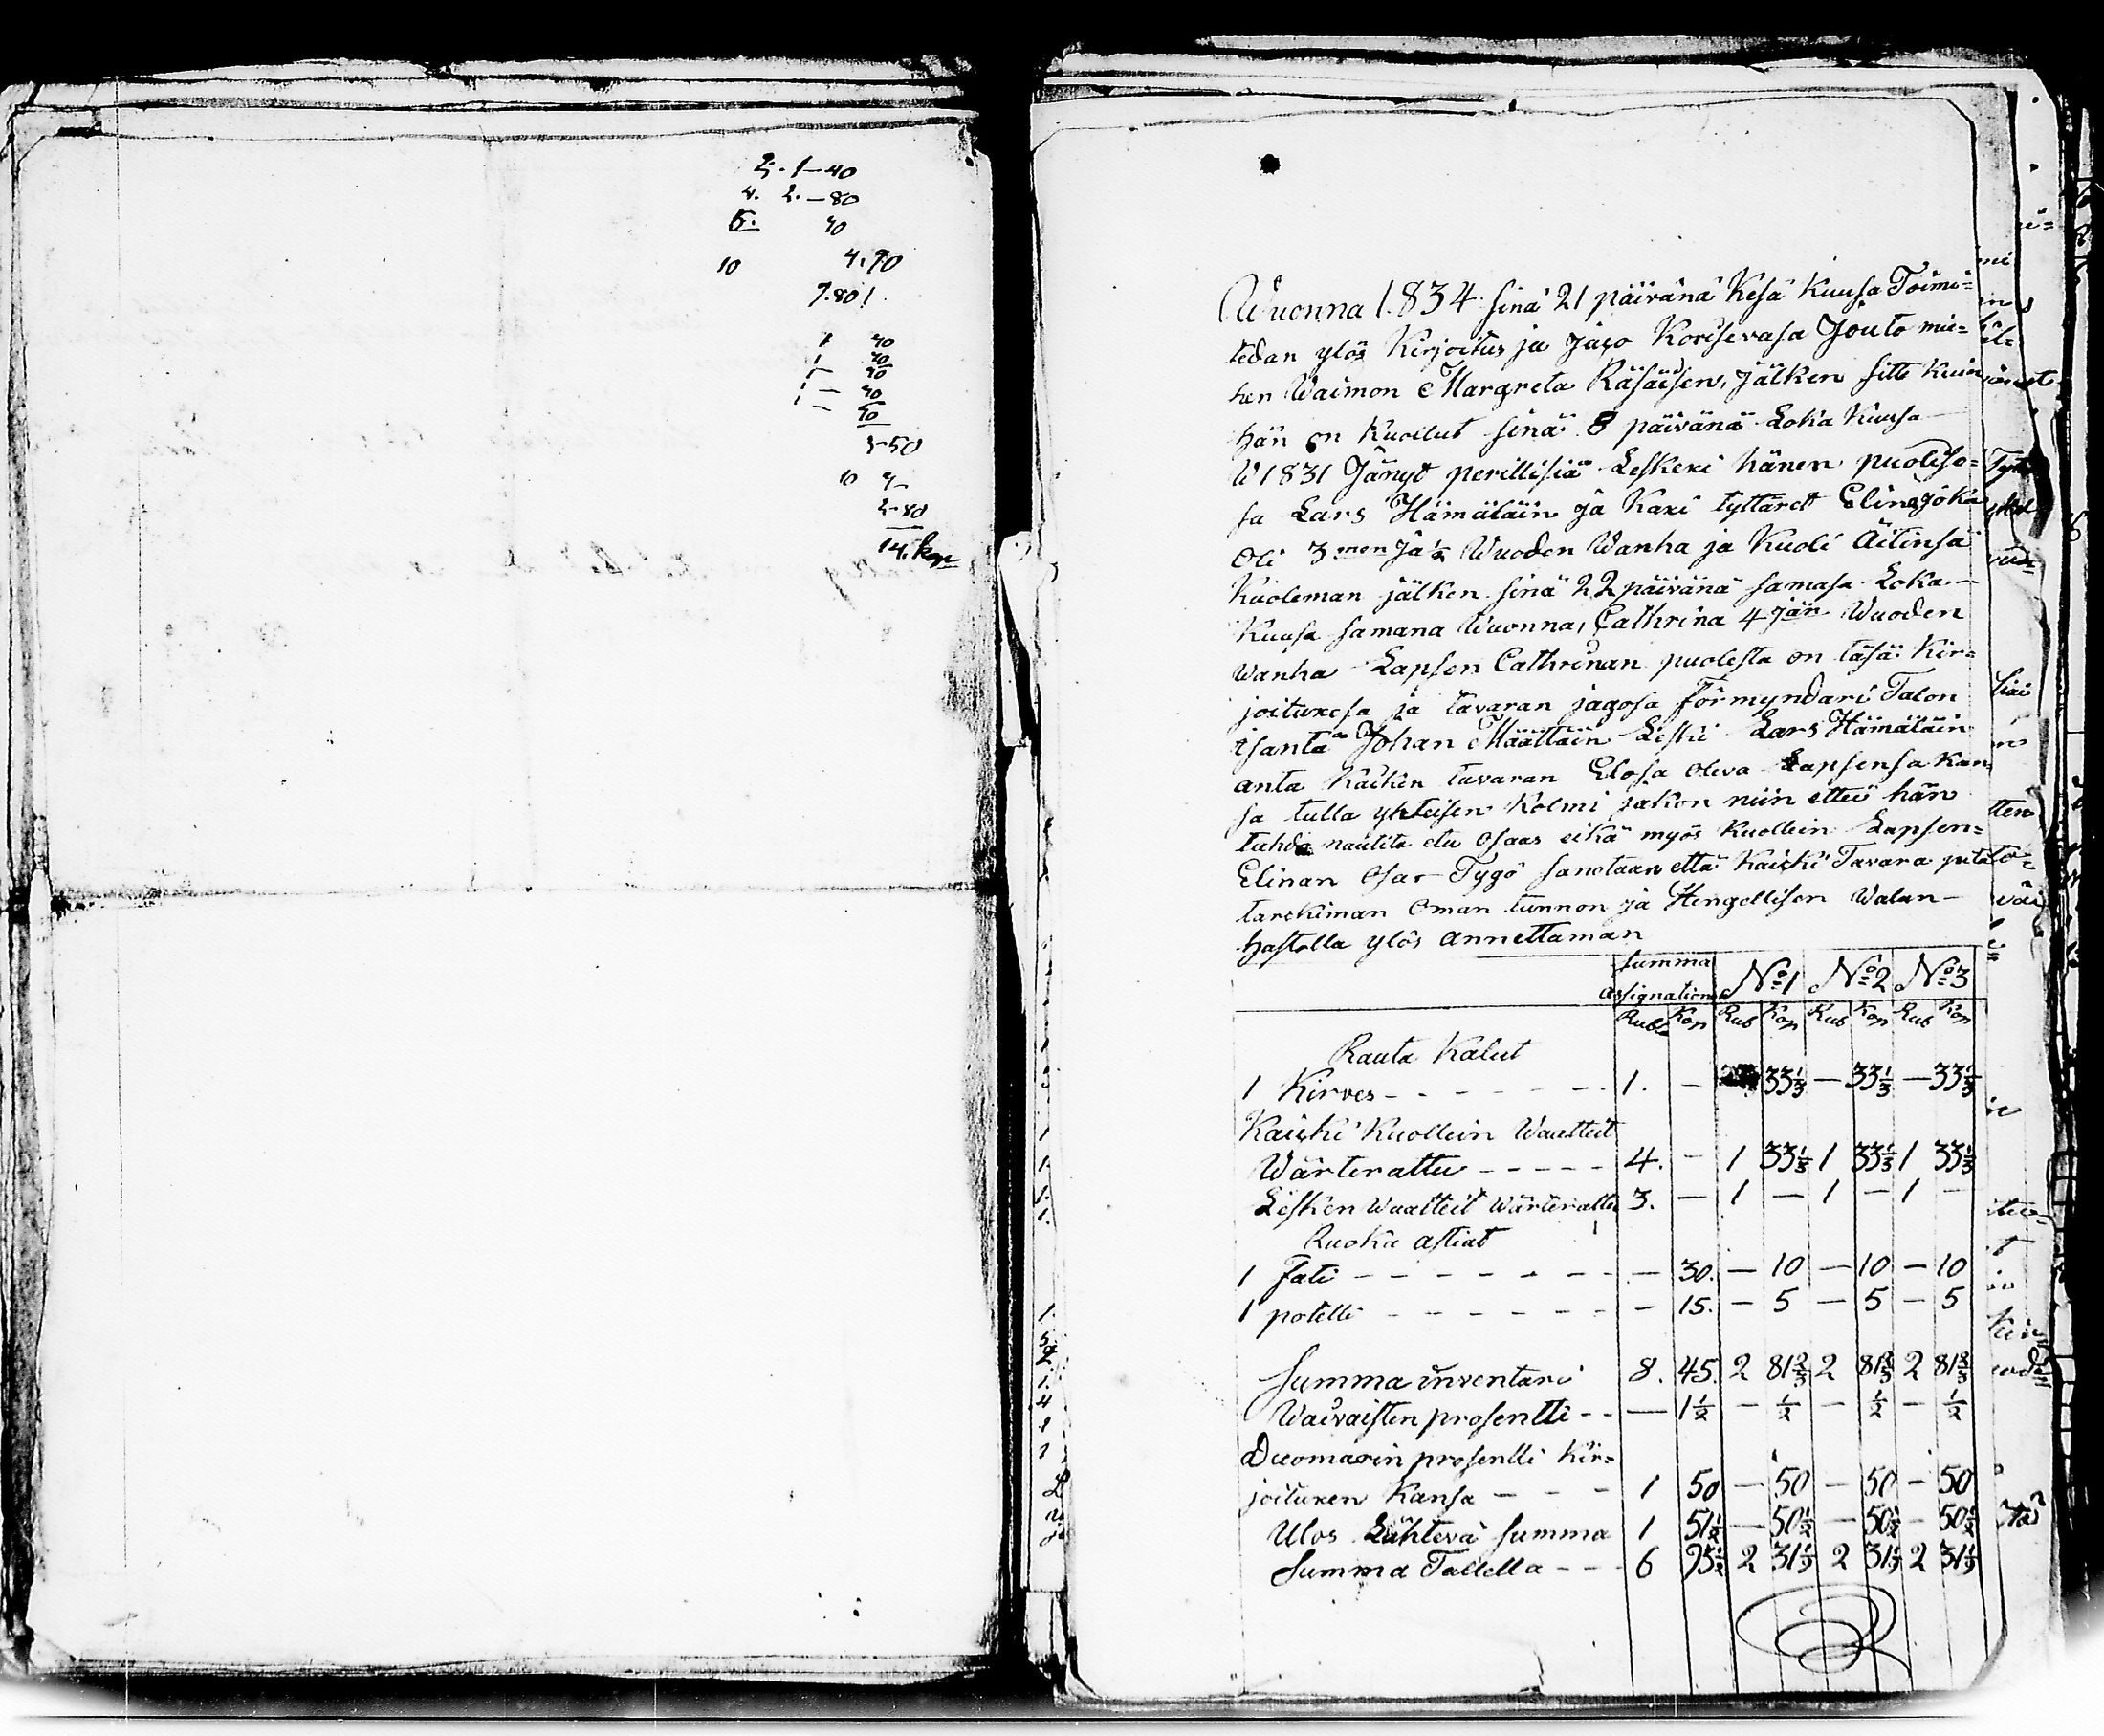 2. 1—40
4. 2.—80
5. 40
10 4.70
7.801.
1 40
1 40
1— 40
1— 40
1— 40
3-50
10 4—
2-80
14. kop
Wuonna 1.834. sinä 21 päivänä Kesä Kuusa Toimi=
tedan ylös Kirjoitus ja jago Korisevasa Jouto mie=
hen Waimon Margreta Räsäisen, jälken sitte kuin
hän on Kuollut sinä 8 päivänä Loka Kuusa
W 1831 Jänyt perillisiä Leskexi hänen puoliso=
sa Lars Hämäläin ja Kaxi tyttäret Elina joka
Oli 3 men ja ½ Wuoden Wanha ja Kuoli Äitinsä
Kuoleman jälken sinä 22 päivänä samasa Loka—
Kuusa samana Wuonna, Cathrina 4 jän Wuoden
Wanha Lapsen Cathrinan puolesta on täsä Kir=
joituxesa ja tavaran jagosa förmyndari Talon
isäntä Johan Määttäin Leski Lars Hämäläin
anta kaiken tavaran Elosa oleva Lapsensa Kan=
sa tulla yhteisen Kolmi jakon niin ettei hän
tahdo nautita etu Osaas eikä myös Kuollein Lapsen=
Elinan Osa— Tygö sanotaan että Kaicki Tavara pitä
tarckiman Oman tunnon ja Hengellisen Walan—
hastolla ylös annettaman
Summa
Assignation No 1 No 2 No 3
Rubl Kop Rub Kop Rub Kop Rub Kop
Rauta Kalut
1 Kirves - - - - - 1. — 33⅓ — 33⅓ — 33⅓
Kaicki Kuollein Waatteit
Wärterattu - - - - - 4. — 1 33⅓ 1 33⅓ 1 33⅓
Lesken Waatteit Wärterattu 3. — 1 — 1 — 1 —
Ruoka astiat
1 fati - - - - - - — 30. — 10 — 10 — 10
1 potelli - - - - - - — 15. — 5 — 5 — 5
Summa inventari 8. 45. 2 81⅔ 2 81⅔ 2 81⅔
Waivaisten prosentti - - — 1½ — ½ — ½ — ½
Duomarin prosentti Kir=
joituxen Kansa - - - 1 50 — 50 — 50 — 50
Ulos Lähtevä Summa 1 51½ — 50½ — 50½ — 50½
Summa Tallella - - - 6 93½ 2 31 2 31 2 31